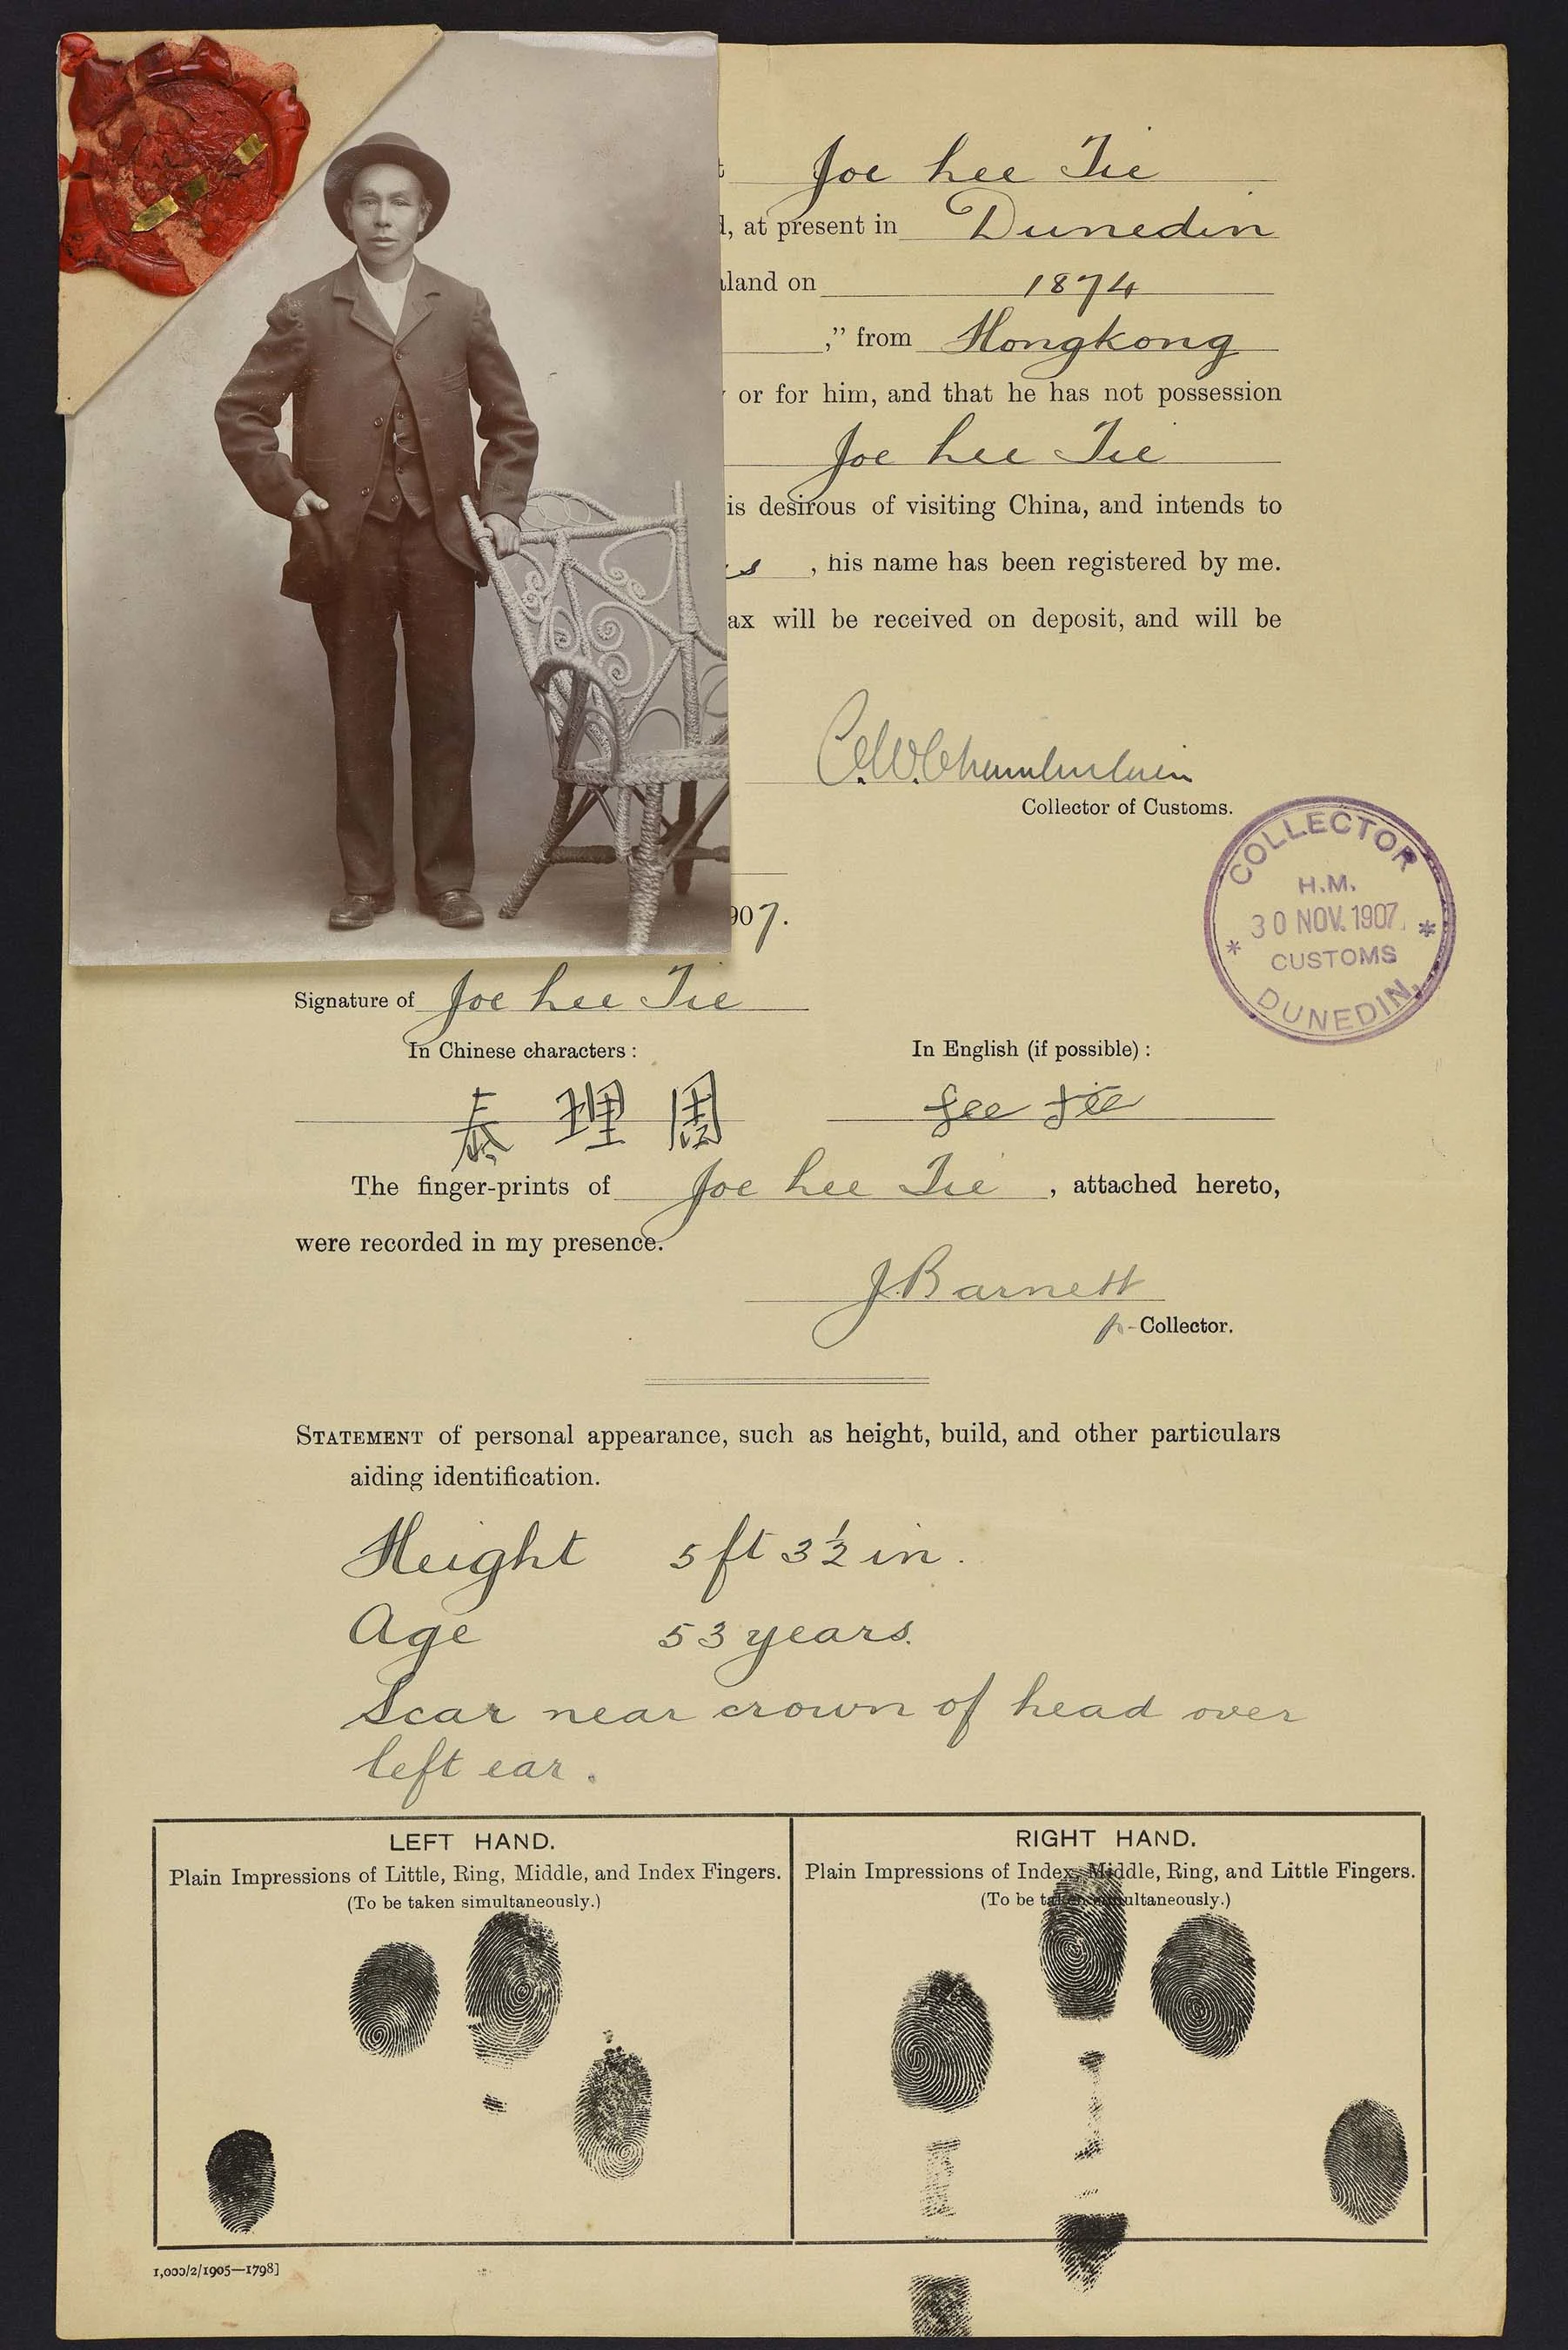 Joe Lee Tie
, at present in Dunedin
land on 1874
," from Hongkong
or for him, and that he has not possession
Joe Lee Tie
is desirous of visiting China, and intends to
, his name has been registered by me.
ax will be received on deposit, and will be
C.W. Chamberlain
Collector of Customs.
COLLECTOR
H.M.
30 NOV. 1907
CUSTOMS
DUNEDIN.
907.
Signature of Joe Lee Tie
In Chinese characters: In English (if possible):
泰 理 周 Lee Tie
The finger-prints of Joe Lee Tie, attached hereto,
were recorded in my presence.
J. Barnett
p-Collector.
STATEMENT of personal appearance, such as height, build, and other particulars
aiding identification.
Height 5 ft 3½ in.
Age 53 years.
Scar near crown of head over
left ear.
LEFT HAND.
Plain Impressions of Little, Ring, Middle, and Index Fingers.
(To be taken simultaneously.)
RIGHT HAND.
Plain Impressions of Index, Middle, Ring, and Little Fingers.
(To be taken simultaneously.)
1,000/2/1905—1798]